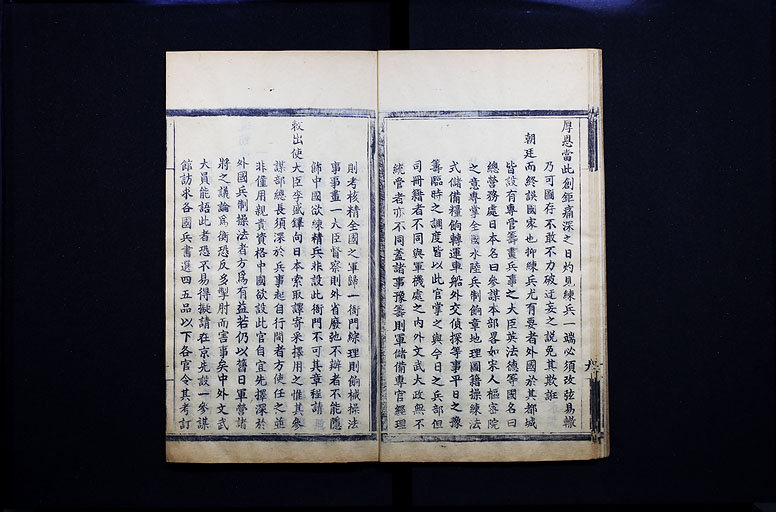 厚恩當此創鉅痛深之日灼見練兵一端必須改弦易轍
乃可圖存不敢不力破迂妄之説免其欺誑
朝廷而終誤國家也抑練兵尤有要者外國於其都城
皆設有專管籌畫兵事之大臣英法德等國名曰
總營務處日本名曰參謀本部畧如宋人樞密院
之意專掌全國水陸兵制餉章地理圖籍操練法
式儲備糧餉轉運車船外交偵探等事平日之豫
籌臨時之調度皆以此官掌之與今日之兵部但
司冊籍者不同與軍機處之内外文武大政無不
統管者亦不同蓋諸事豫籌則軍儲備專官經理
則考核精全國之軍歸一衙門綜理則餉械操法
事事畫一大臣督察則外省廢弛不辦者不能隱
飾中國欲練精兵非設此衙門不可其章程請
敕出使大臣李盛鐸向日本索取譯寄采擇用之惟其參
謀部總長須深於兵事起自行間者方使任之並
非僅用親貴資格中國欲設此官自宜先擇深於
外國兵制操法者方為有益若仍以舊日軍營諸
將之議論為衡恐反多掣肘而害事矣中外文武
大員能語此者恐不易得擬請在京先設一參謀
館訪求各國兵書選四五品以下各官令其考訂